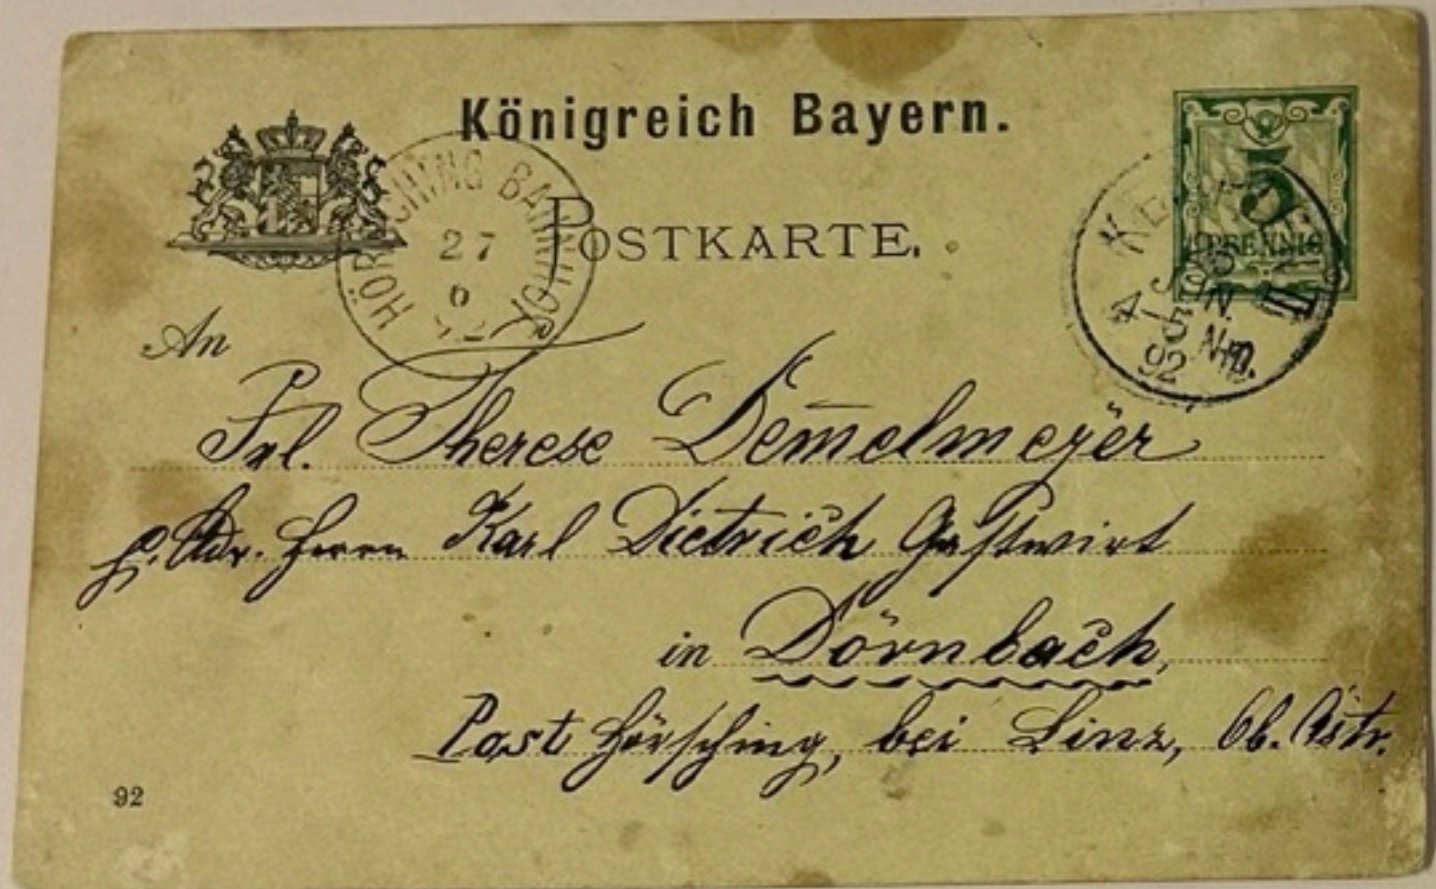 Königreich Bayern.
HÖRSCHING BAHNHOF
27
6
92
POSTKARTE.
5
PFENNIG
JUN.
4-5 Nm.
92
III
An
Frl. Therese Dem̄elmeÿer
p. Adr. Herrn Karl Dietrich Gastwirt
in Dörnbach,
Post Hörsching, bei Linz, Ob. Östr.
92